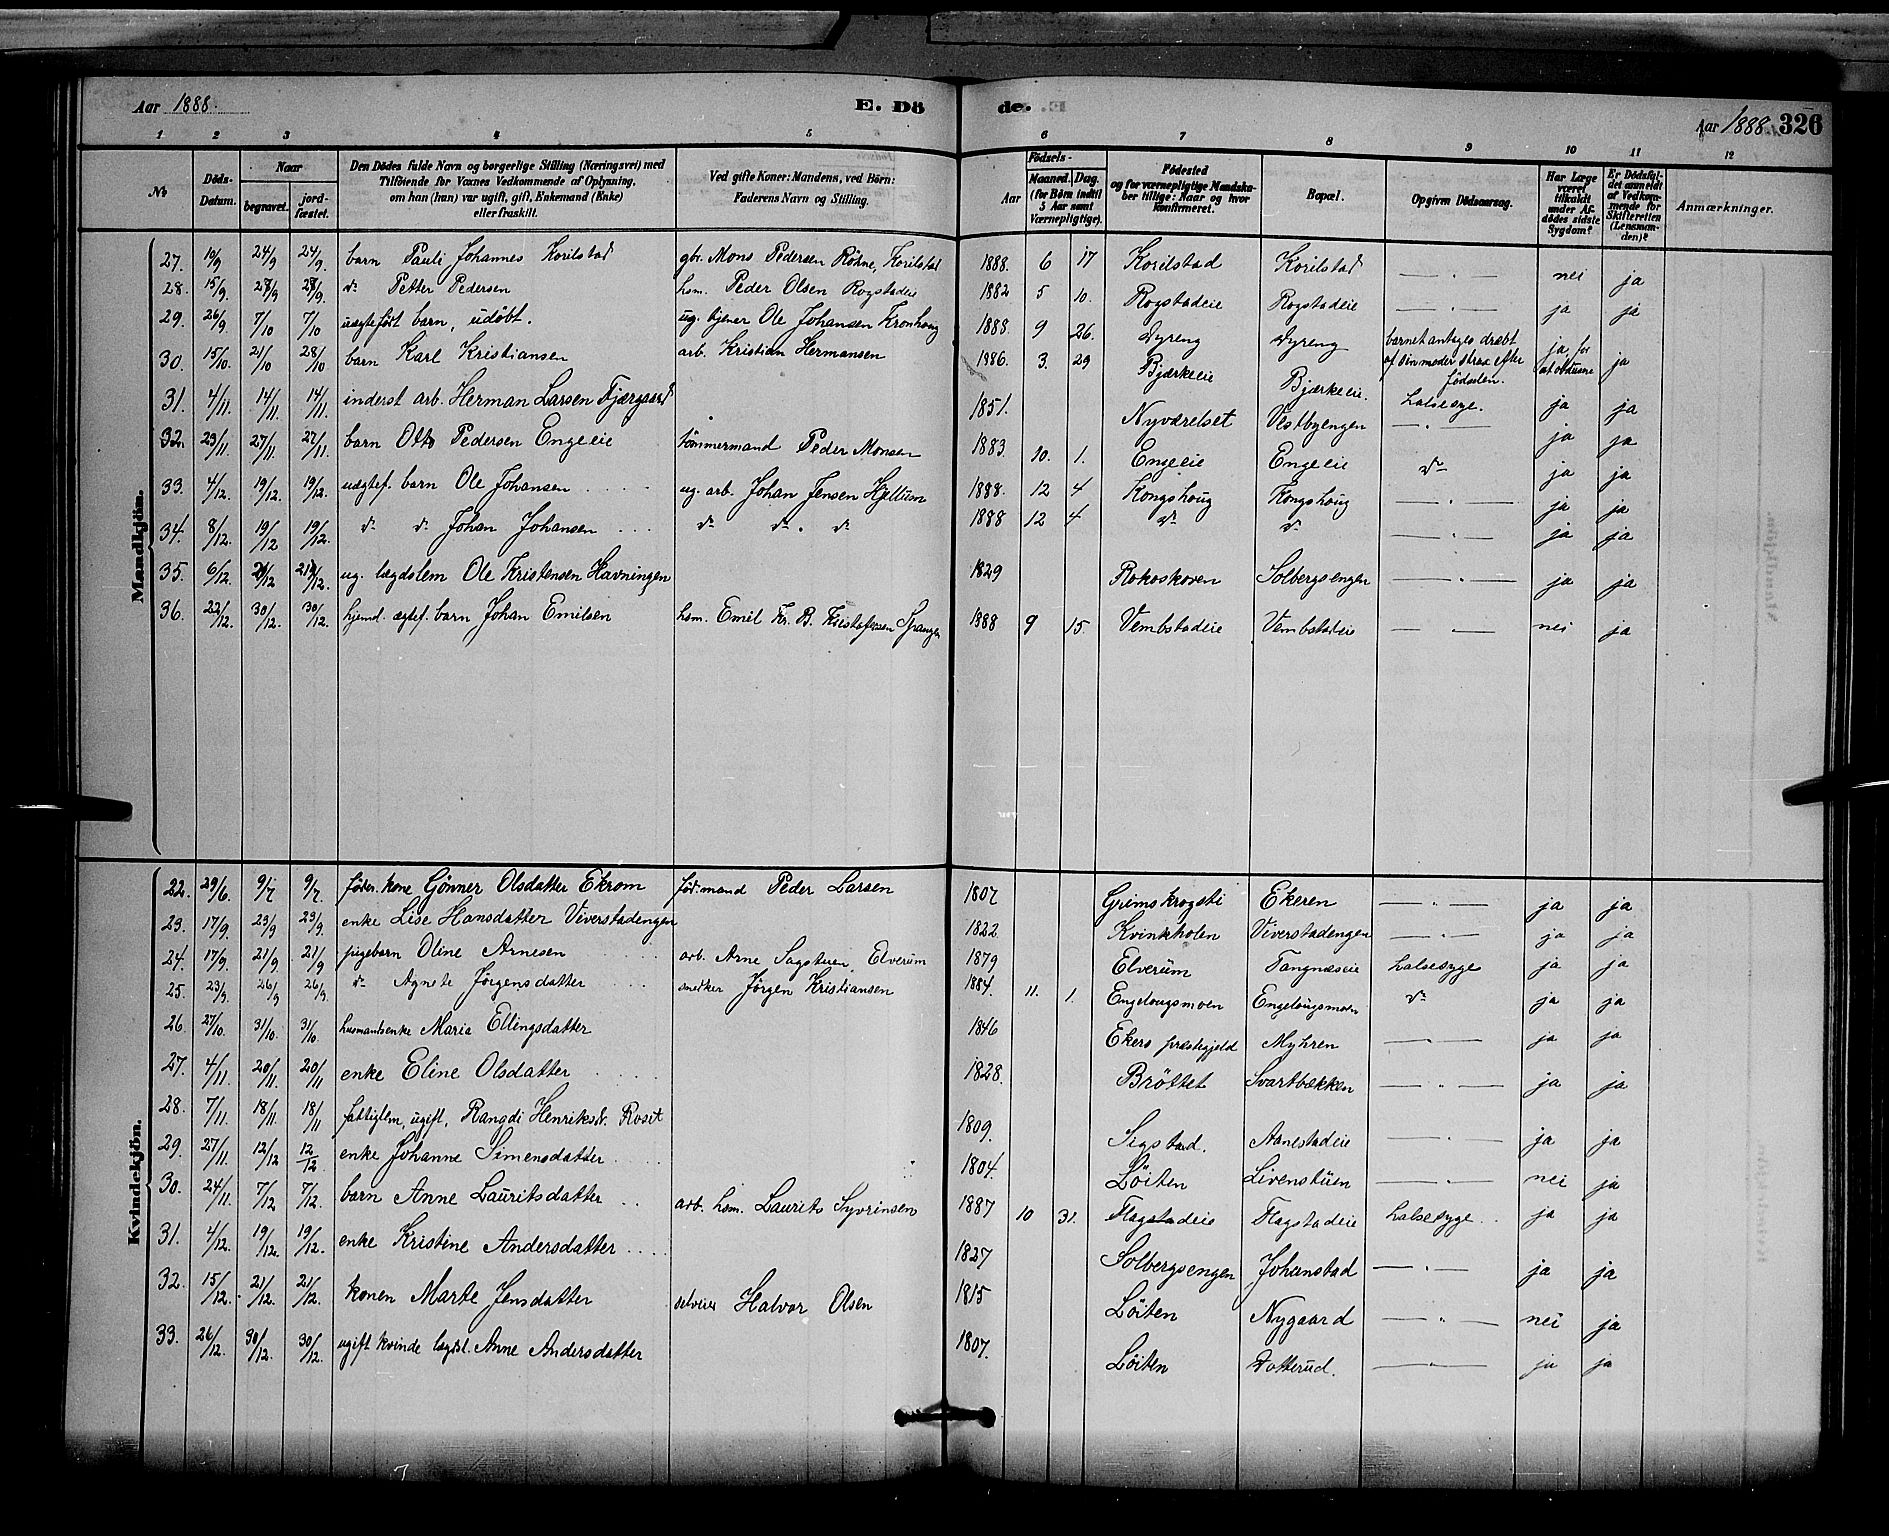 Aar 1888. E. Dö de. Aar 1888. 326
1 2 3 4 5 6 7 8 9 10 11 12
No
Döds-Datum.
Naar
begravet.
jord-fæstet.
Den Dödes fulde Navn og borgerlige Stilling (Næringsvei) med
Tilföiende for Voxnes Vedkommende af Oplysning,
om han (hun) var ugift, gift, Enkemand (Enke)
eller fraskilt.
Ved gifte Koner: Mandens, ved Börn:
Faderens Navn og Stilling.
Födsels-
Aar
Maaned. Dag.
(for Börn indtil
5 Aar samt
Værnepligtige).
Födested
og for værnepligtige Mandska-
ber tillige: Naar og hvor
konfirmeret.
Bopæl.
Opgiven Dödsaarsag.
Har Læge
været
tilkaldt
under Af-
dödes sidste
Sygdom?
Er Dödsfal-
det anmeldt
af Vedkom-
mende for
Skifteretten
(Lensman-
den)?
Anmærkninger.
Mandkjön.
27. 19/9 24/9 24/9 barn Pauli Johannes Korilstad gbr. Mons Pedersen Röhne, Korilstad 1888. 6 17 Korilstad Korilstad — " — nei ja
28. 15/9. 28/9 28/9. do Petter Pedersen hsm. Peder Olsen Rogstadeie 1882 5 10. Rogstadeie Rogstadeie — " — ja ja
29. 26/9 7/10 7/10 uægtefödt barn, udöbt. ug. tjener Ole Johansen Kronhoug 1888. 9 26. Dyreng Dyreng barnet antages dræbt af sin moder strax efter födselen. ja for at obducere ja
30. 15/10. 21/10 28/10 barn Karl Kristiansen arb. Kristian Hermansen 1886. 3. 29 Bjærkeeie Bjærkeeie. Halsesyge. ja ja
31. 4/11. 14/11. 14/11. inderst arb. Herman Larsen Fjærgaard 1851. Nyværelset Vestbyengen — " — ja ja
32. 23/11. 27/11. 27/11. barn Otto Pedersen Engeeie tömmermand Peder Monsen 1883. 10. 1. Engeeie Engeeie do ja ja
33. 4/12. 19/12. 19/12. uægtef. barn Ole Johansen ug. arb. Johan Jensen Hjellum 1888. 12 4 Kongshoug Kongshoug — " — ja ja
34. 8/12. 19/12 19/12. do do Johan Johansen do do " do 1888 12 4 do do — " — ja ja
35. 6/12. 21/12 21/12. ug. lægdslem Ole Kristensen Havningen 1829 Rokoskoven Solbergsengen — " — ja ja
36. 22/12. 30/12. 30/12. hjemd. ægtef. barn Johan Emilsen hsm. Emil Kr. B. Kristofersen Spangen 1888 9 15. Vembstadeie Vembstadeie — " — nei ja
Kvindekjön.
22. 29/6. 9/7 9/7. föder. kone Gönner Olsdatter Ekrom föd.mand Peder Larsen 1807 Grimskrogsti Ekeren — " — ja ja
23. 17/9. 23/9 23/9. enke Lise Hansdatter Viverstadengen 1822. Kvinkholen Viverstadengen — " — ja ja
24. 17/9. 21/9. 21/9 pigebarn Oline Arnesen arb. Arne Sagstuen, Elverum 1879 Elverum Tangnæseie Halsesyge ja ja
25. 23/9. 26/9 26/9. do Agnete Jörgensdatter snedker Jörgen Kristiansen 1884. 11. 1. Engelougsmoen Engelougsmoen do ja ja
26. 27/10. 31/10. 31/10. husmandsenke Maria Ellingsdatter 1846 Ekers præstegjeld Myhren — " — ja ja
27. 4/11. 20/11. 20/11 enke Eline Olsdatter 1828. Bröttet Svartbækken — " — ja ja
28. 7/11. 18/11. 18/11 fattiglem, ugift, Rangdi Henriksdr. Roset 1809. Sigstad. Aanestadeie — " — ja ja
29. 27/11. 12/12 12/12 enke Johanne Simensdatter 1804. Löiten Livenstuen — " — nei ja
30. 24/11. 7/12 7/12. barn Anne Lauritsdatter arb. hsm. Laurits Syvrinsen 1887 10 31. Flagstadeie Flagstadeie Halsesyge ja ja
31. 4/12. 19/12. 19/12. enke Kristine Andersdatter 1827 Solbergsengen Johanstad — " — ja ja
32. 15/12. 21/12. 21/12. konen Marte Jensdatter selveier Halvor Olsen 1815 Löiten Nygaard — " — nei ja
33. 26/12. 30/12. 30/12. ugift kvinde lægdsl. Anne Andersdatter 1807. Löiten Dotterud. — " — ja ja